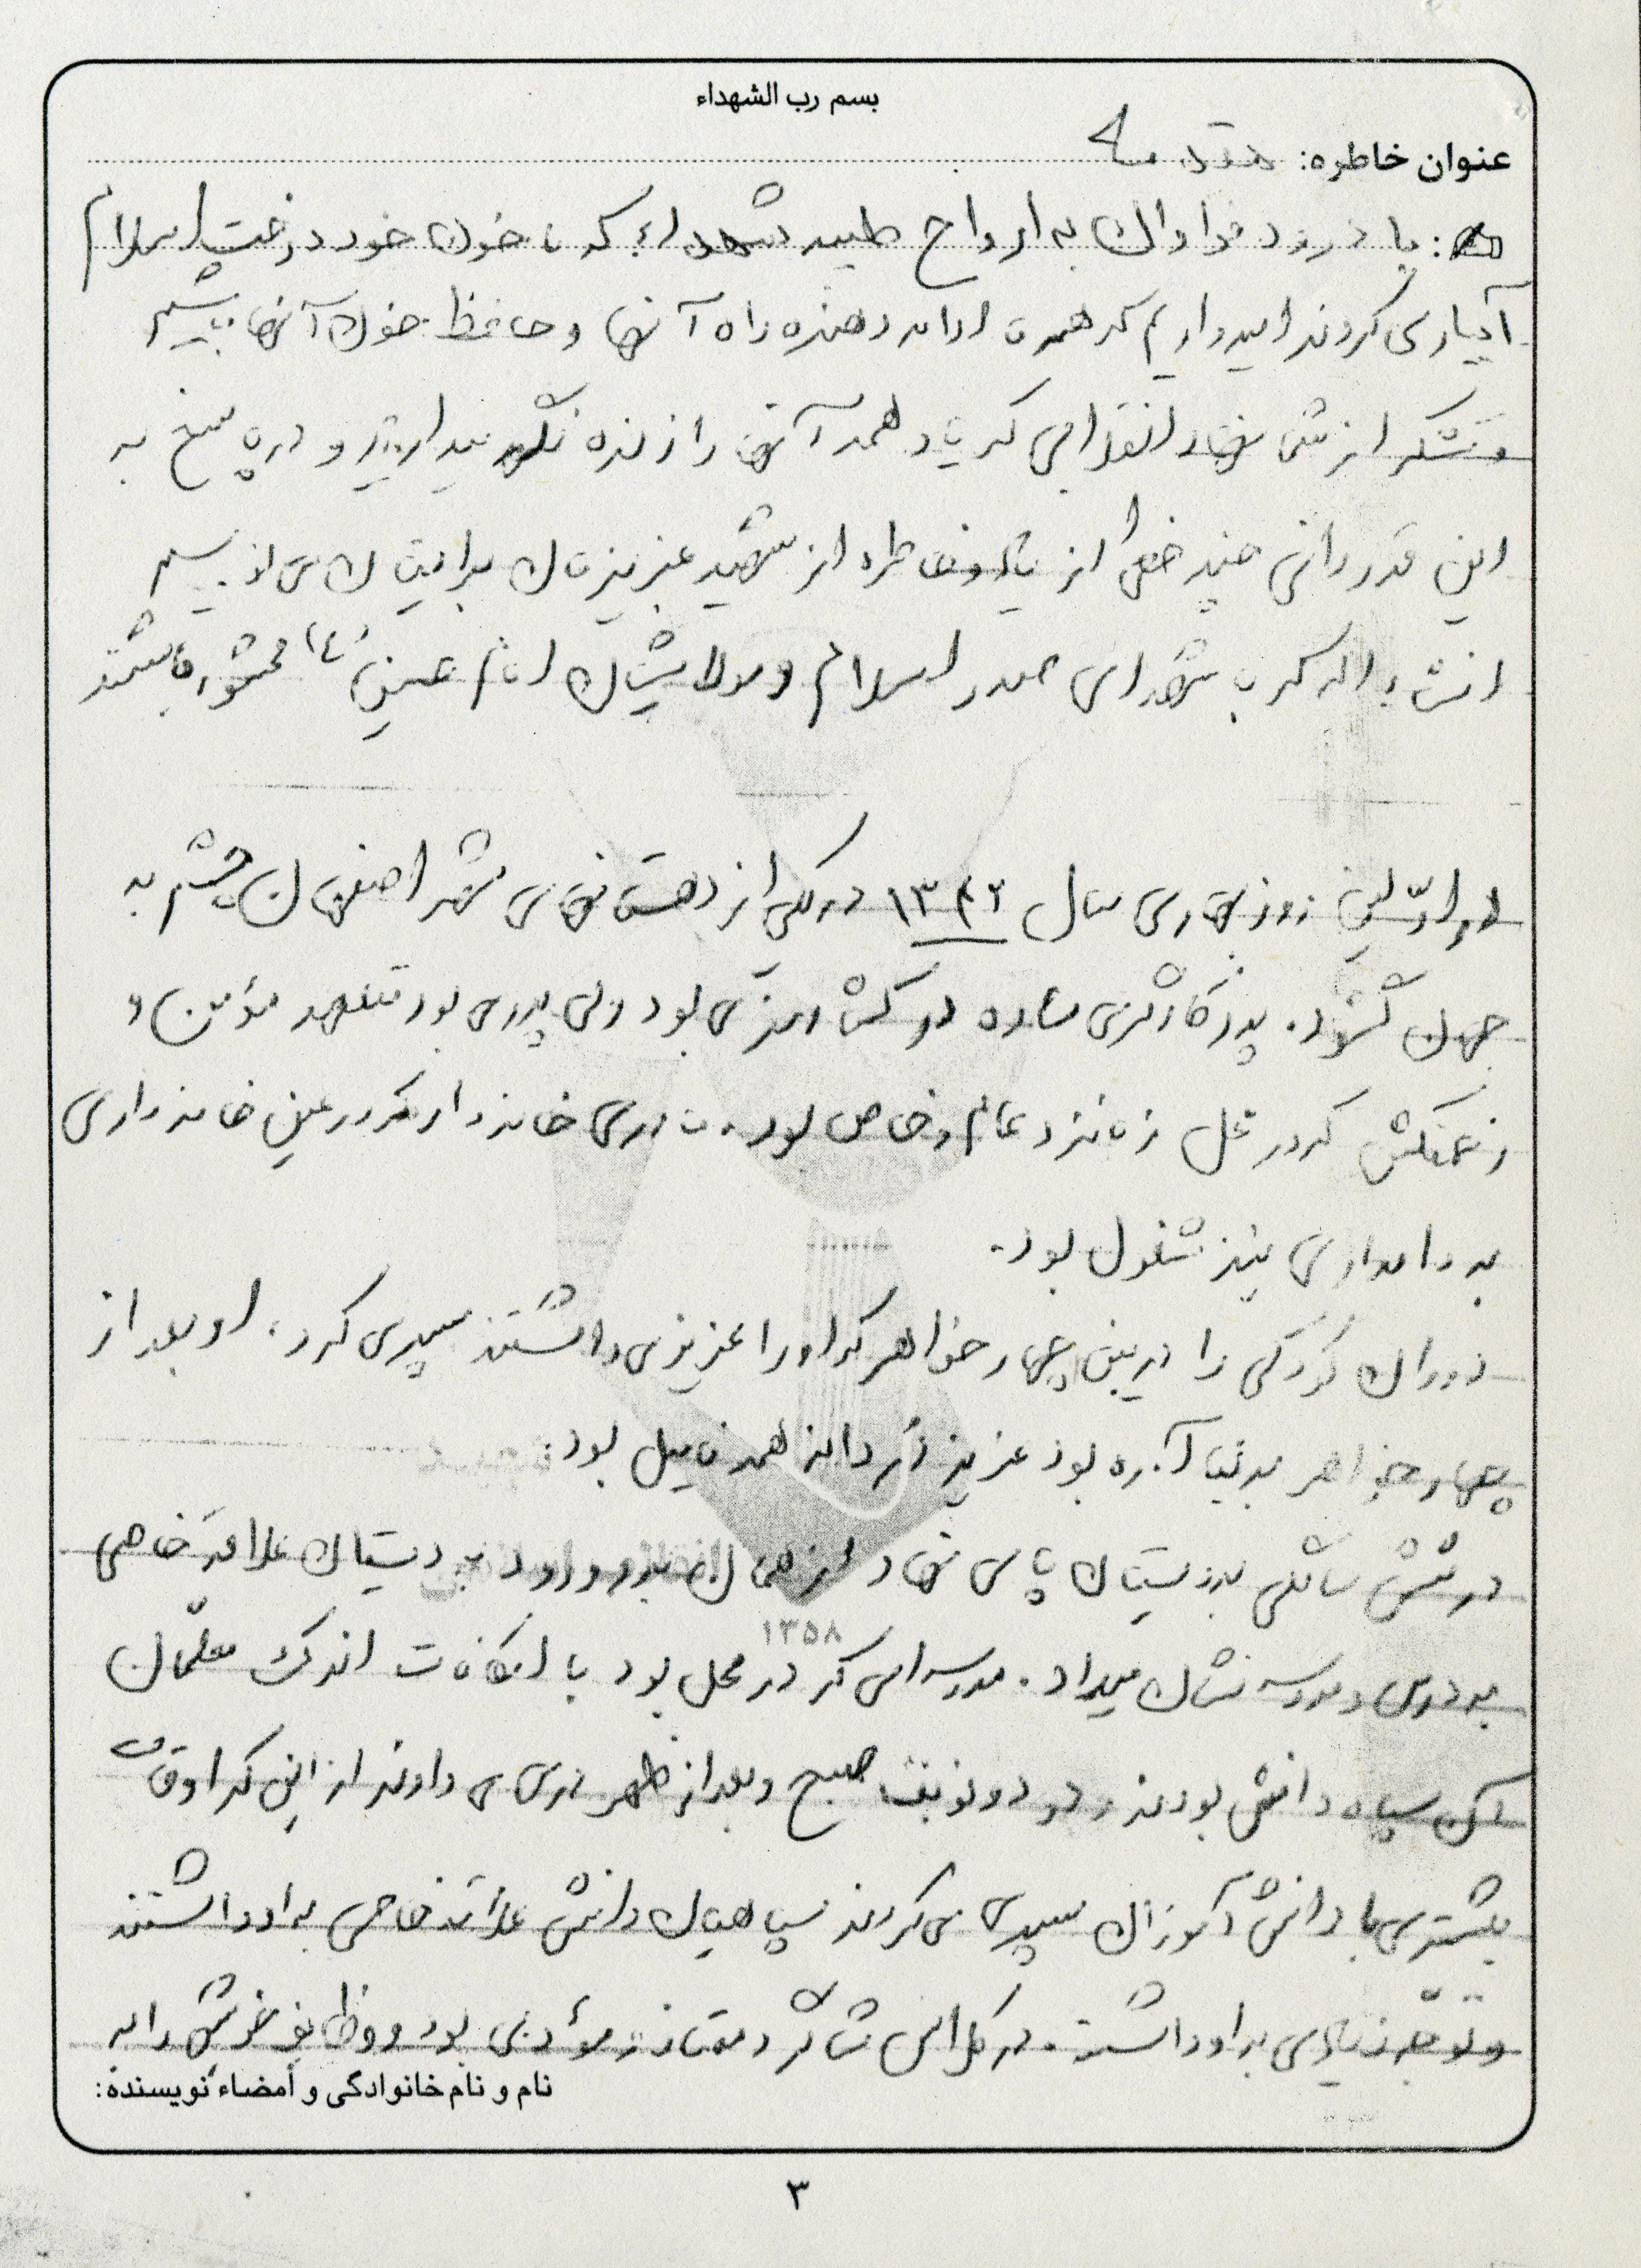 بسم رب الشهداء
عنوان خاطره: مقدمه
با درود فراوان به ارواح طیبه شهداء که با خون خود درخت اسلام
آبیاری کردند امیدواریم که همه ادامه دهنده راه آنها و حافظ خون آنها باشیم
و تشکر از شما نهاد انقلابی که یاد همه آنها را زنده نگه میدارید و در پاسخ به
این قدردانی چند خطی از یاد و خاطره از شهید عزیزمان برایتان می نویسیم
انشاءاله که با شهدای صدر اسلام و مولایشان امام حسین (ع) محشور باشند
در اولین روز بهاری سال ۱۳۴۲ در یکی از دهستانهای شهر اصفهان چشم به
جهان گشود. پدر کارگری ساده در کشاورزی بود ولی پدری بود متعهد مؤمن و
زحمتکش که در محل زبانزد عام و خاص بود. مادری خانه دار که در عین خانه داری
به دامداری نیز مشغول بود.
دوران کودکی را در بین چهار خواهر که او را عزیز می داشتند سپری کرد، او بعد از
چهار خواهر بدنیا آمده بود عزیز کرده همه فامیل بود.
در شش سالگی به دبستان پای نهاد از همان بدو ورود به دبستان علاقه خاصی
۱۳۵۸
به درس و مدرسه نشان میداد. مدرسه ای که در محل بود با امکانات اندک معلمان
سپاه دانش بودند و در دو نوبت صبح و بعد از ظهر درس می دادند از این که اوقات
بیشتری با دانش آموزان سپری می کردند سپاهیان دانش علاقه خاصی به او داشتند
و توجه زیادی به او داشتند. در کلاس شاگرد ممتاز و مؤدبی بود و وظایف خویش را به
نام و نام خانوادگی و امضاء نویسنده:
۳